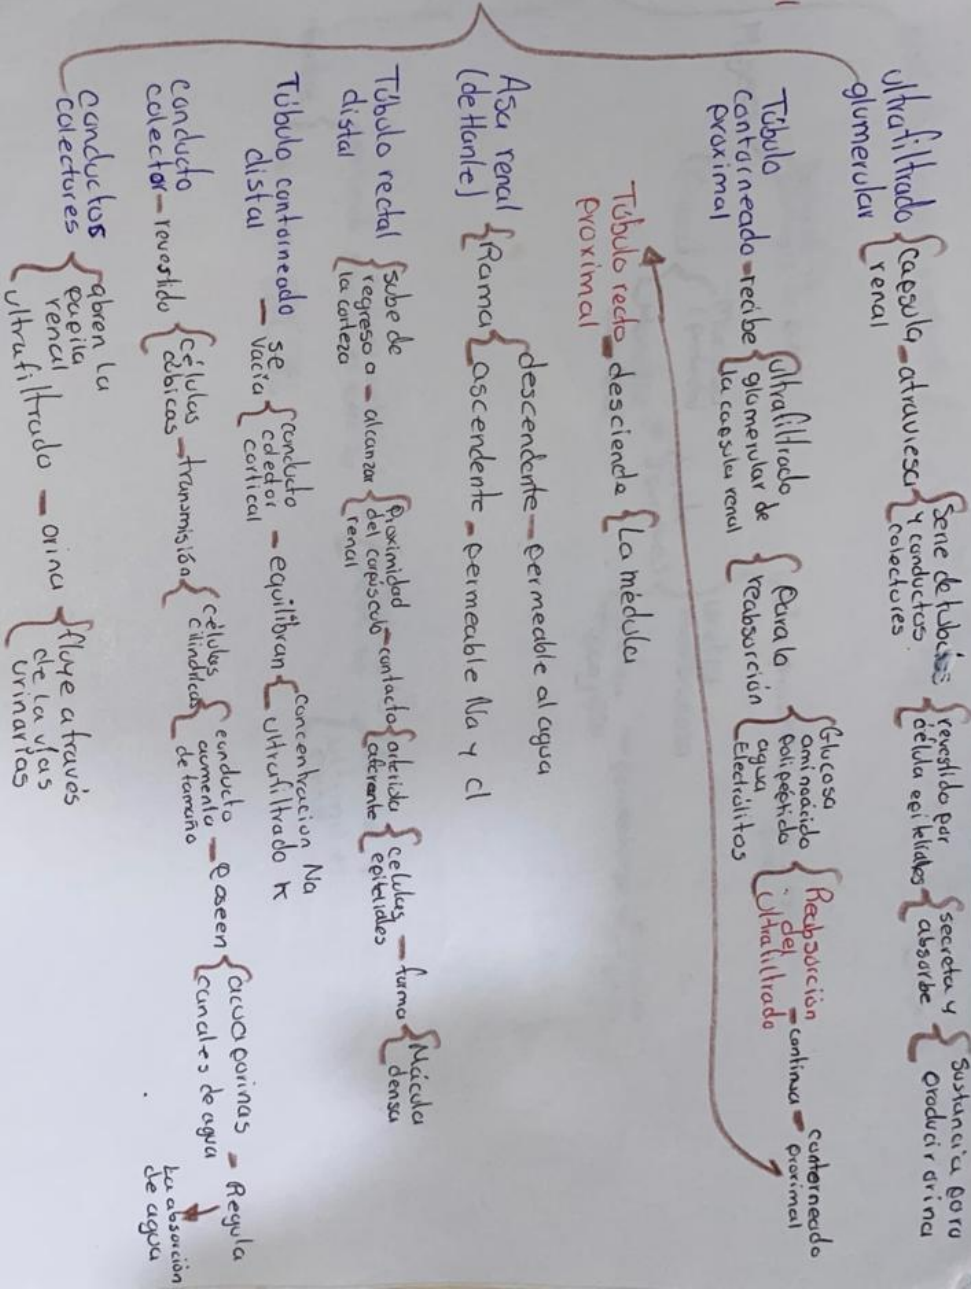 ultrafiltrado
glumerular
capsula - atraviesa
renal
Serie de tubulos
y conductos
colectures
revestido por
célula epiteliales
secreta y
absorbe
Sustancia para
producir orina
Túbulo
contorneado - recibe
proximal
Ultrafiltrado
glumerular de
la capsula renal
Para la
reabsorción
Glucosa
aminoácido
polipéptido
agua
Electrólitos
Reabsorción
del
Ultrafiltrado
- continua - contorneado
proximal
Túbulo recto - desciende
proximal
La médula
Asa renal
(de Hanle)
Rama
descendente - permeable al agua
ascendente - permeable Na y Cl
Túbulo rectal
distal
sube de
regreso a - alcanzar
la corteza
Proximidad
del corpúsculo - contacto
renal
arteriola
aferente
celulas - forma
epiteliales
Mácula
densa
Túbulo contorneado - se
distal
vacia
conducto
coledor - equilibran
cortical
concentracion Na
ultrafiltrado K
conducto
colector - revestido
células
cúbicas - transmisión
células
cilindricas
conducto
aumenta - Poseen
de tamaño
acuaporinas - Regula
canales de agua
La absorción
de agua
conductos
colectures
abren la
papila
renal
ultrafiltrado - orina
fluye a través
de la vías
urinarias